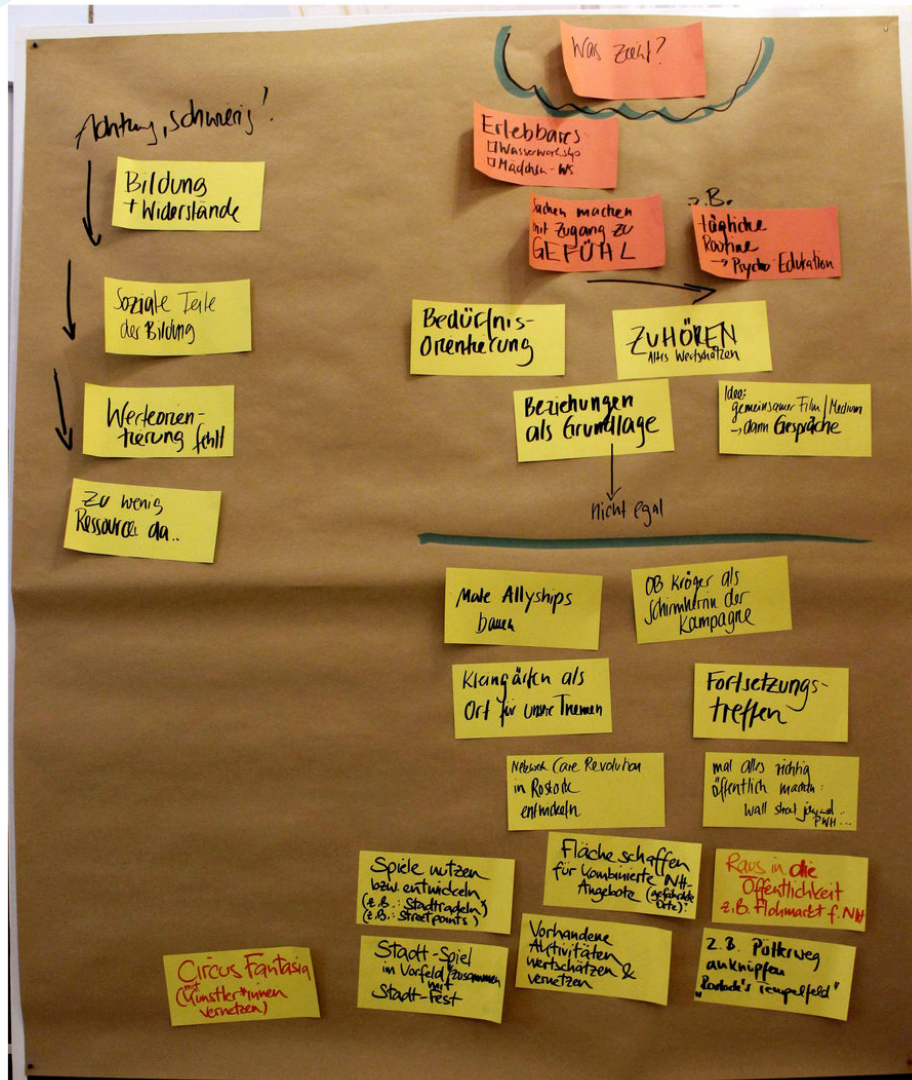 Was zählt?
Achtung, schwierig!
Bildung
+ Widerstände
Soziale Teile
der Bildung
Werteorien-
tierung fehlt
Zu wenig
Ressource da..
Erlebbares
Wasserworkshop
Mädchen-WS
Sachen machen
mit Zugang zu
GEFÜHL
z.B.
tägliche
Routine
→ Psycho Edukation
Bedürfnis-
Orientierung
ZUHÖREN
Alles Wertschätzen
Beziehungen
als Grundlage
nicht egal
Idee:
gemeinsamer Film/Medium
→ dann Gespräche
Male Allyships
bauen
OB Kröger als
Schirmherrin der
Kampagne
Kleingärten als
Ort für unsere Themen
Fortsetzungs-
treffen
Netzwerk Care Revolution
in Rostock
entwickeln
mal alles richtig
öffentlich machen:
Wall street journal..
PWH...
Spiele nutzen
bzw. entwickeln
(z.B.: Stadtradeln")
(z.B.: Streetpoints)
Fläche schaffen
für kombinierte NH-
Angebote (gefährdete
Orte)
Raus in die
Öffentlichkeit
z.B. Flohmarkt f. NH
Circus Fantasia
(mit
Künstler*innen
vernetzen)
Stadt-Spiel
im Vorfeld/zusammen
mit
Stadt-Fest
Vorhandene
Aktivitäten
wertschätzen &
vernetzen
z.B. Pütterweg
anknüpfen
"Rostock's Tempelfeld"